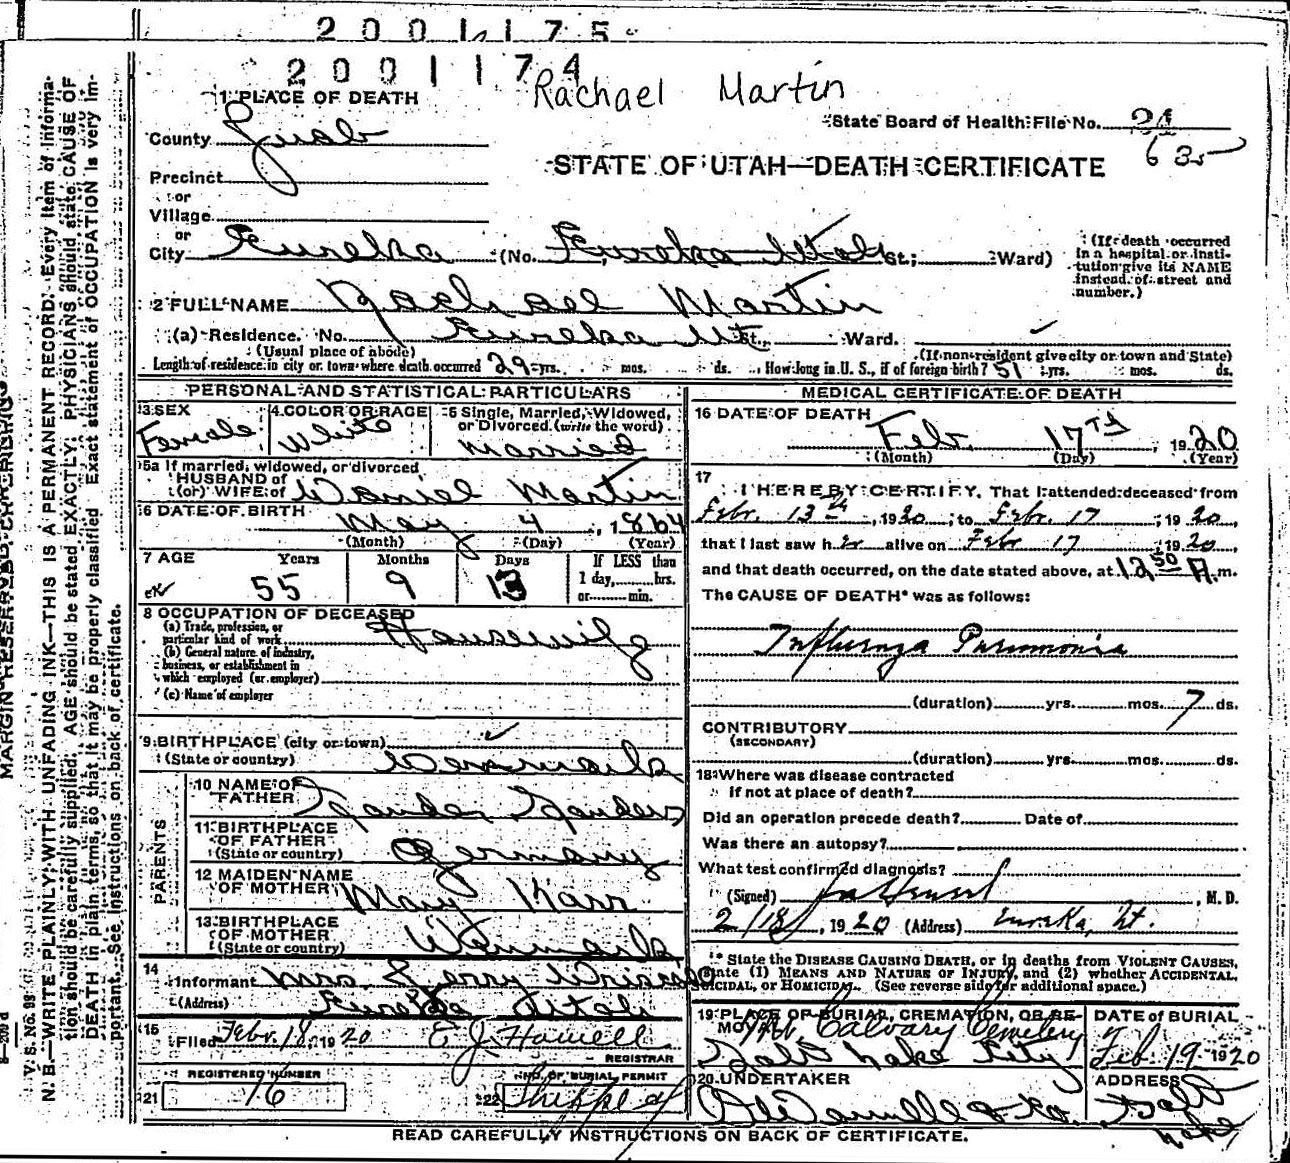 2001175
2001174
Rachael Martin
1 PLACE OF DEATH
State Board of Health File No. 21
635
County Juab
STATE OF UTAH—DEATH CERTIFICATE
Precinct
or
Village
or
City Eureka (No. Eureka Utah St.; Ward)
(If death occurred in a hospital or institution give its NAME instead of street and number.)
2 FULL NAME Rachael Martin
(a) Residence. No. Eureka Ut St., Ward.
(Usual place of abode) (If non-resident give city or town and State)
Length of residence in city or town where death occurred 29 yrs. mos. ds. How long in U. S., if of foreign birth? 51 yrs. mos. ds.
PERSONAL AND STATISTICAL PARTICULARS
3 SEX
Female
4 COLOR OR RACE
White
5 Single, Married, Widowed, or Divorced (write the word)
Married
5a If married, widowed, or divorced
HUSBAND of
(or) WIFE of Daniel Martin
6 DATE OF BIRTH
May 4, 1864
(Month) (Day) (Year)
7 AGE Years Months Days If LESS than
55 9 13 1 day, hrs.
or min.
8 OCCUPATION OF DECEASED
(a) Trade, profession, or particular kind of work Housewife
(b) General nature of industry, business, or establishment in which employed (or employer)
(c) Name of employer
9 BIRTHPLACE (city or town)
(State or country) Denmark
PARENTS
10 NAME OF FATHER
11 BIRTHPLACE OF FATHER
(State or country) Germany
12 MAIDEN NAME OF MOTHER Mary Karr
13 BIRTHPLACE OF MOTHER
(State or country) Denmark
14
Informant Mrs. Jerry
(Address) Eureka Utah
15
Filed Febr. 18, 1920 E J Howell
REGISTRAR
REGISTERED NUMBER
21 16
NO. OF BURIAL PERMIT
22
MEDICAL CERTIFICATE OF DEATH
16 DATE OF DEATH
Feb. 17TH, 1920
(Month) (Day) (Year)
17
I HEREBY CERTIFY, That I attended deceased from
Febr. 13th, 1920, to Febr. 17, 1920,
that I last saw her alive on Febr 17, 1920,
and that death occurred, on the date stated above, at 12 50 A.m.
The CAUSE OF DEATH* was as follows:
Influenza Pneumonia
(duration) yrs. mos. 7 ds.
CONTRIBUTORY
(SECONDARY)
(duration) yrs. mos. ds.
18 Where was disease contracted
if not at place of death?
Did an operation precede death? Date of
Was there an autopsy?
What test confirmed diagnosis?
(Signed) , M. D.
2/18, 1920 (Address) Eureka, Ut.
* State the DISEASE CAUSING DEATH, or in deaths from VIOLENT CAUSES, state (1) MEANS AND NATURE OF INJURY, and (2) whether ACCIDENTAL, SUICIDAL, or HOMICIDAL. (See reverse side for additional space.)
19 PLACE OF BURIAL, CREMATION, OR REMOVAL
Mt Calvary Cemetery
Salt Lake City
DATE of BURIAL
Feb. 19 1920
20 UNDERTAKER
ADDRESS
Salt Lake
READ CAREFULLY INSTRUCTIONS ON BACK OF CERTIFICATE.
MARGIN RESERVED FOR BINDING
V. S. No. 98
N. B.—WRITE PLAINLY, WITH UNFADING INK—THIS IS A PERMANENT RECORD. Every item of information should be carefully supplied. AGE should be stated EXACTLY. PHYSICIANS should state CAUSE OF DEATH in plain terms, so that it may be properly classified. Exact statement of OCCUPATION is very important. See instructions on back of certificate.